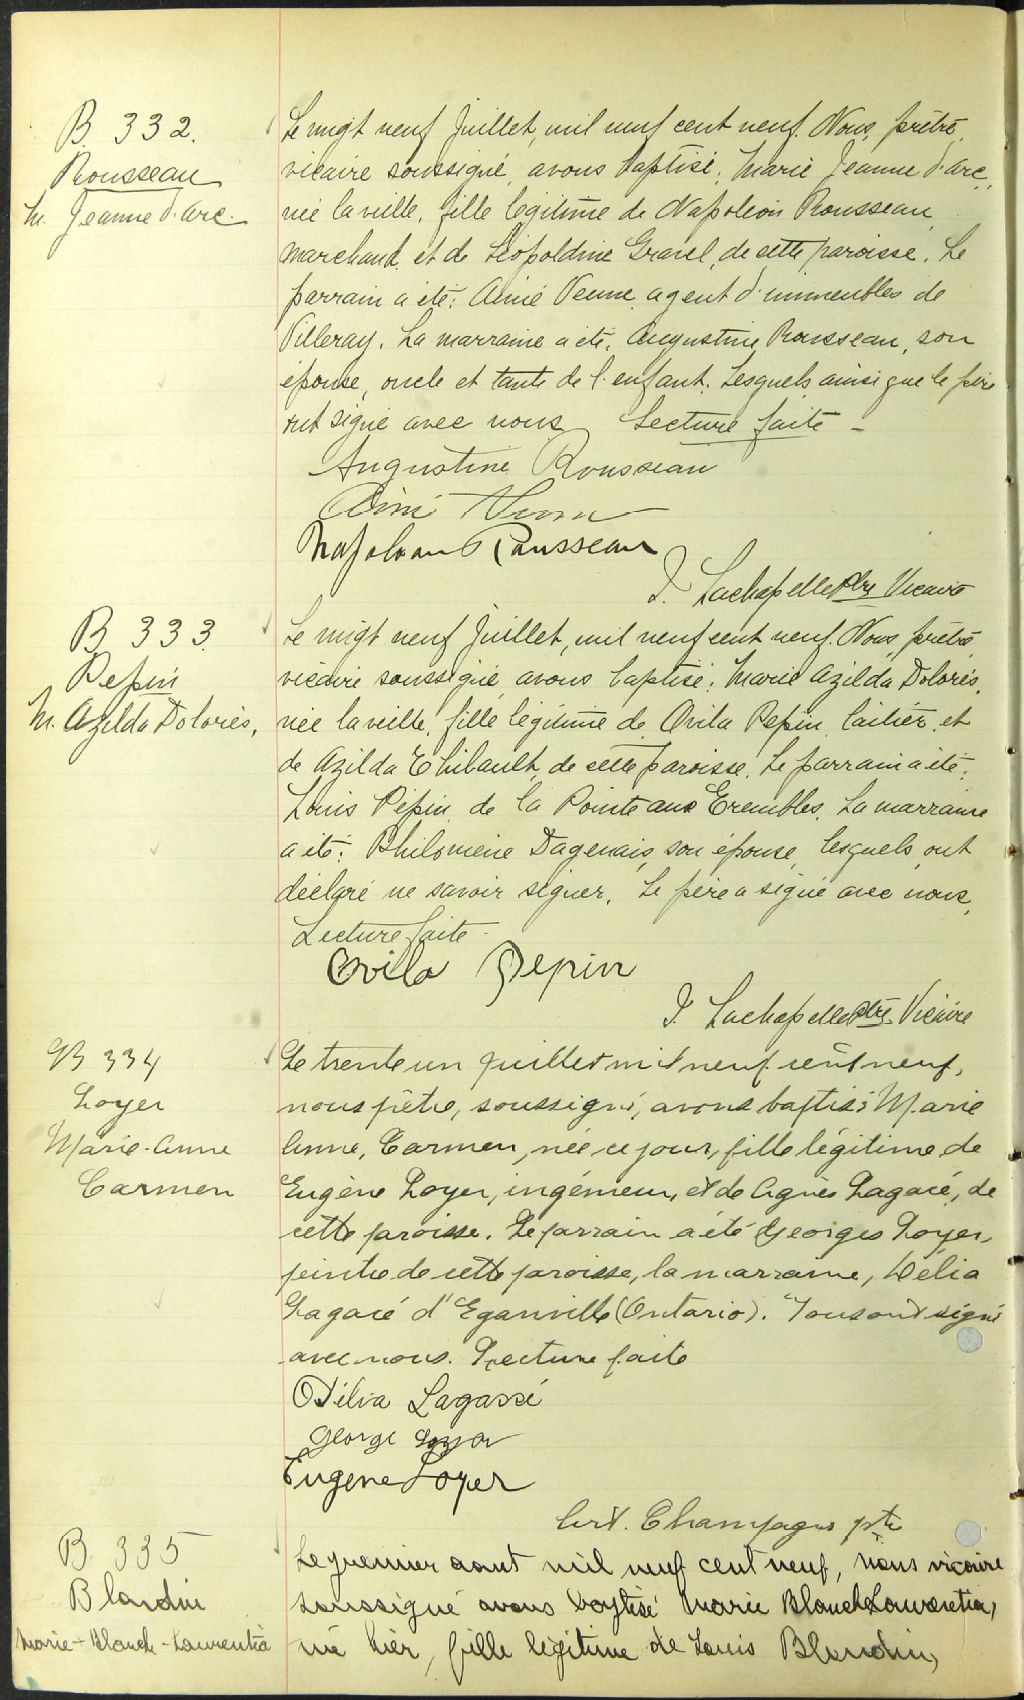 B. 332.
Rousseau
M. Jeanne d'Arc.
Le vingt neuf Juillet, mil neuf cent neuf. Nous, prêtre,
vicaire soussigné, avons baptisé, Marie Jeanne d'Arc,
née la veille, fille légitime de Napoléon Rousseau,
marchand, et de Léopoldine Gravel, de cette paroisse. Le
parrain a été: Aimé Venne, agent d'immeubles de
Villeray. La marraine a été, Augustine Rousseau, son
épouse, oncle et tante de l'enfant. Lesquels ainsi que le père
ont signé avec nous. Lecture faite -
Augustine Rousseau
Aimé Venne
Napoleon Rousseau
J. Lachapelle Ptre Vicaire
B. 333.
Pepin
M. Azilda Dolorès,
Le vingt neuf Juillet, mil neuf cent neuf. Nous, prêtre,
vicaire soussigné, avons baptisé: Marie Azilda Dolorès,
née la veille, fille légitime de Ovila Pepin, laitier, et
de Azilda Thibault, de cette paroisse. Le parrain a été:
Louis Pépin, de la Pointe aux Trembles. La marraine
a été: Philomène Dagenais, son épouse, lesquels ont
déclaré ne savoir signer. Le père a signé avec nous,
Lecture faite -
Ovila Pepin
J. Lachapelle Ptre. Vicaire
B 334
Loyer
Marie-Anne
Carmen
Le trente un juillet mil neuf cent neuf,
nous prêtre, soussigné, avons baptisé Marie
Anne, Carmen, née ce jour, fille légitime de
Eugène Loyer, ingénieur, et de Agnès Lagacé, de
cette paroisse. Le parrain a été Georges Loyer,
peintre de cette paroisse, la marraine, Délia
Lagacé d'Eganville (Ontario). Tous ont signé
avec nous. Lecture faite
Délia Lagassé
George Loyer
Eugene Loyer
Champagne ptre
B. 335
Blondin
Marie-Blanch-Laurentia
Le premier aout mil neuf cent neuf, nous vicaire
soussigné avons baptisé Marie Blanch Laurentia,
née hier, fille légitime de Louis Blondin,